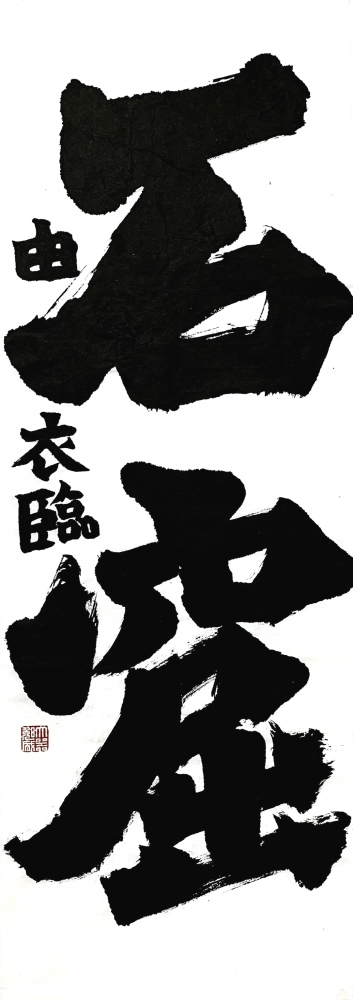 石窟
由衣臨